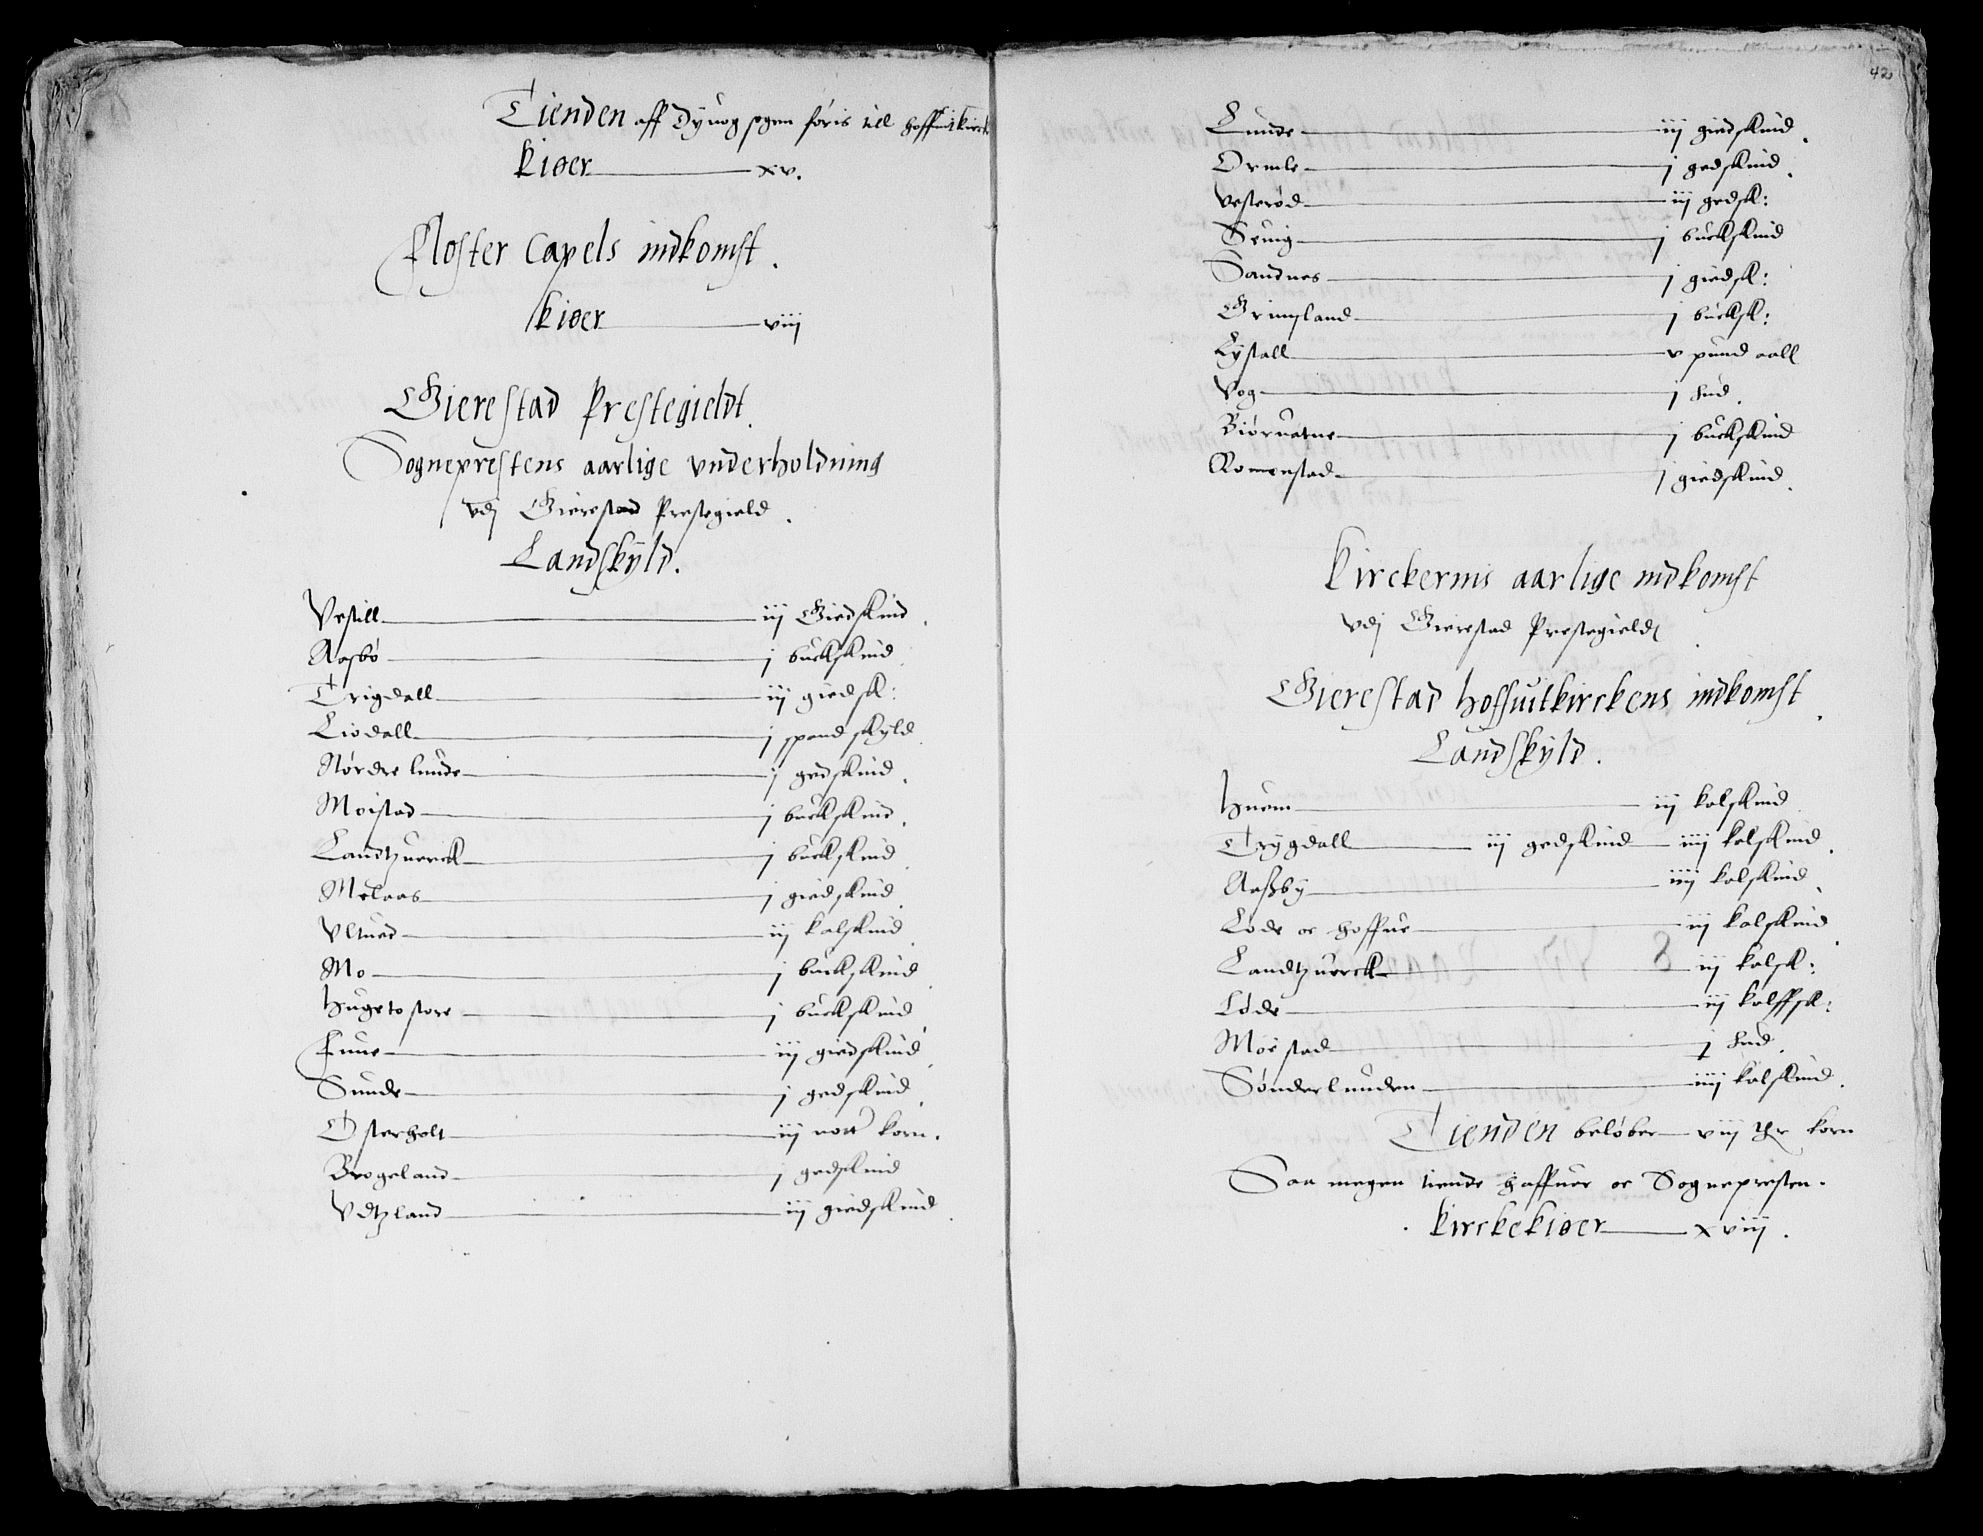 Tienden aff Dynog sogen føris till hoffuitkirck
Kiøer xv.
Closter Capels indkomst.
Kiøer viij
Gierestad Prestegieldt.
Sogneprestens aarlige vnderholdning
vdj Gierestad Prestegield.
Landskyld.
Vestill iij Giedskind.
Aasbø j buckskind
Trigdall iij giedsk:
Liodall j spand skyld
Nørdre lunde j gedskind.
Moistad j buckskind.
Landtzuerck j buckskind
Melaas j giedskind
Vltued ij kalskind
Mo j buckskind
Hugetostore j buckskind
Fune iij giedskind
Sunde j gedskind
Østerholt iij nott korn.
Brogeland j gedskind
Vdtzland iij giedskind
42
Lunde iij giedskind.
Ormle j gedskind.
Vesterød iij gedsk:
Seuig j buckskind
Sandnes j giedsk:
Grimsland j bucksk:
Lystall v pund aall
Vog j hud.
Biøruatne j buckskind
Romenstad j giedskind.
Kirckernis aarlige indkomst
vdj Gierestad Prestegield
Gierestad hoffuitkirckens indkomst.
Landskyld.
Huem iij kalskind
Trygdall iij gedskind iiij kalskind.
Aasby iiij kalskind
Løde oc hoffue iij kalskind
Landtzuerck iij kalsk:
Løde iij kalffsk:
Moistad j hud.
Sønderlunden iiij kalskind.
Tienden beløber viij thr korn
Saa megen tiende haffuer oc Sognepresten.
Kirckekiøer xviij.